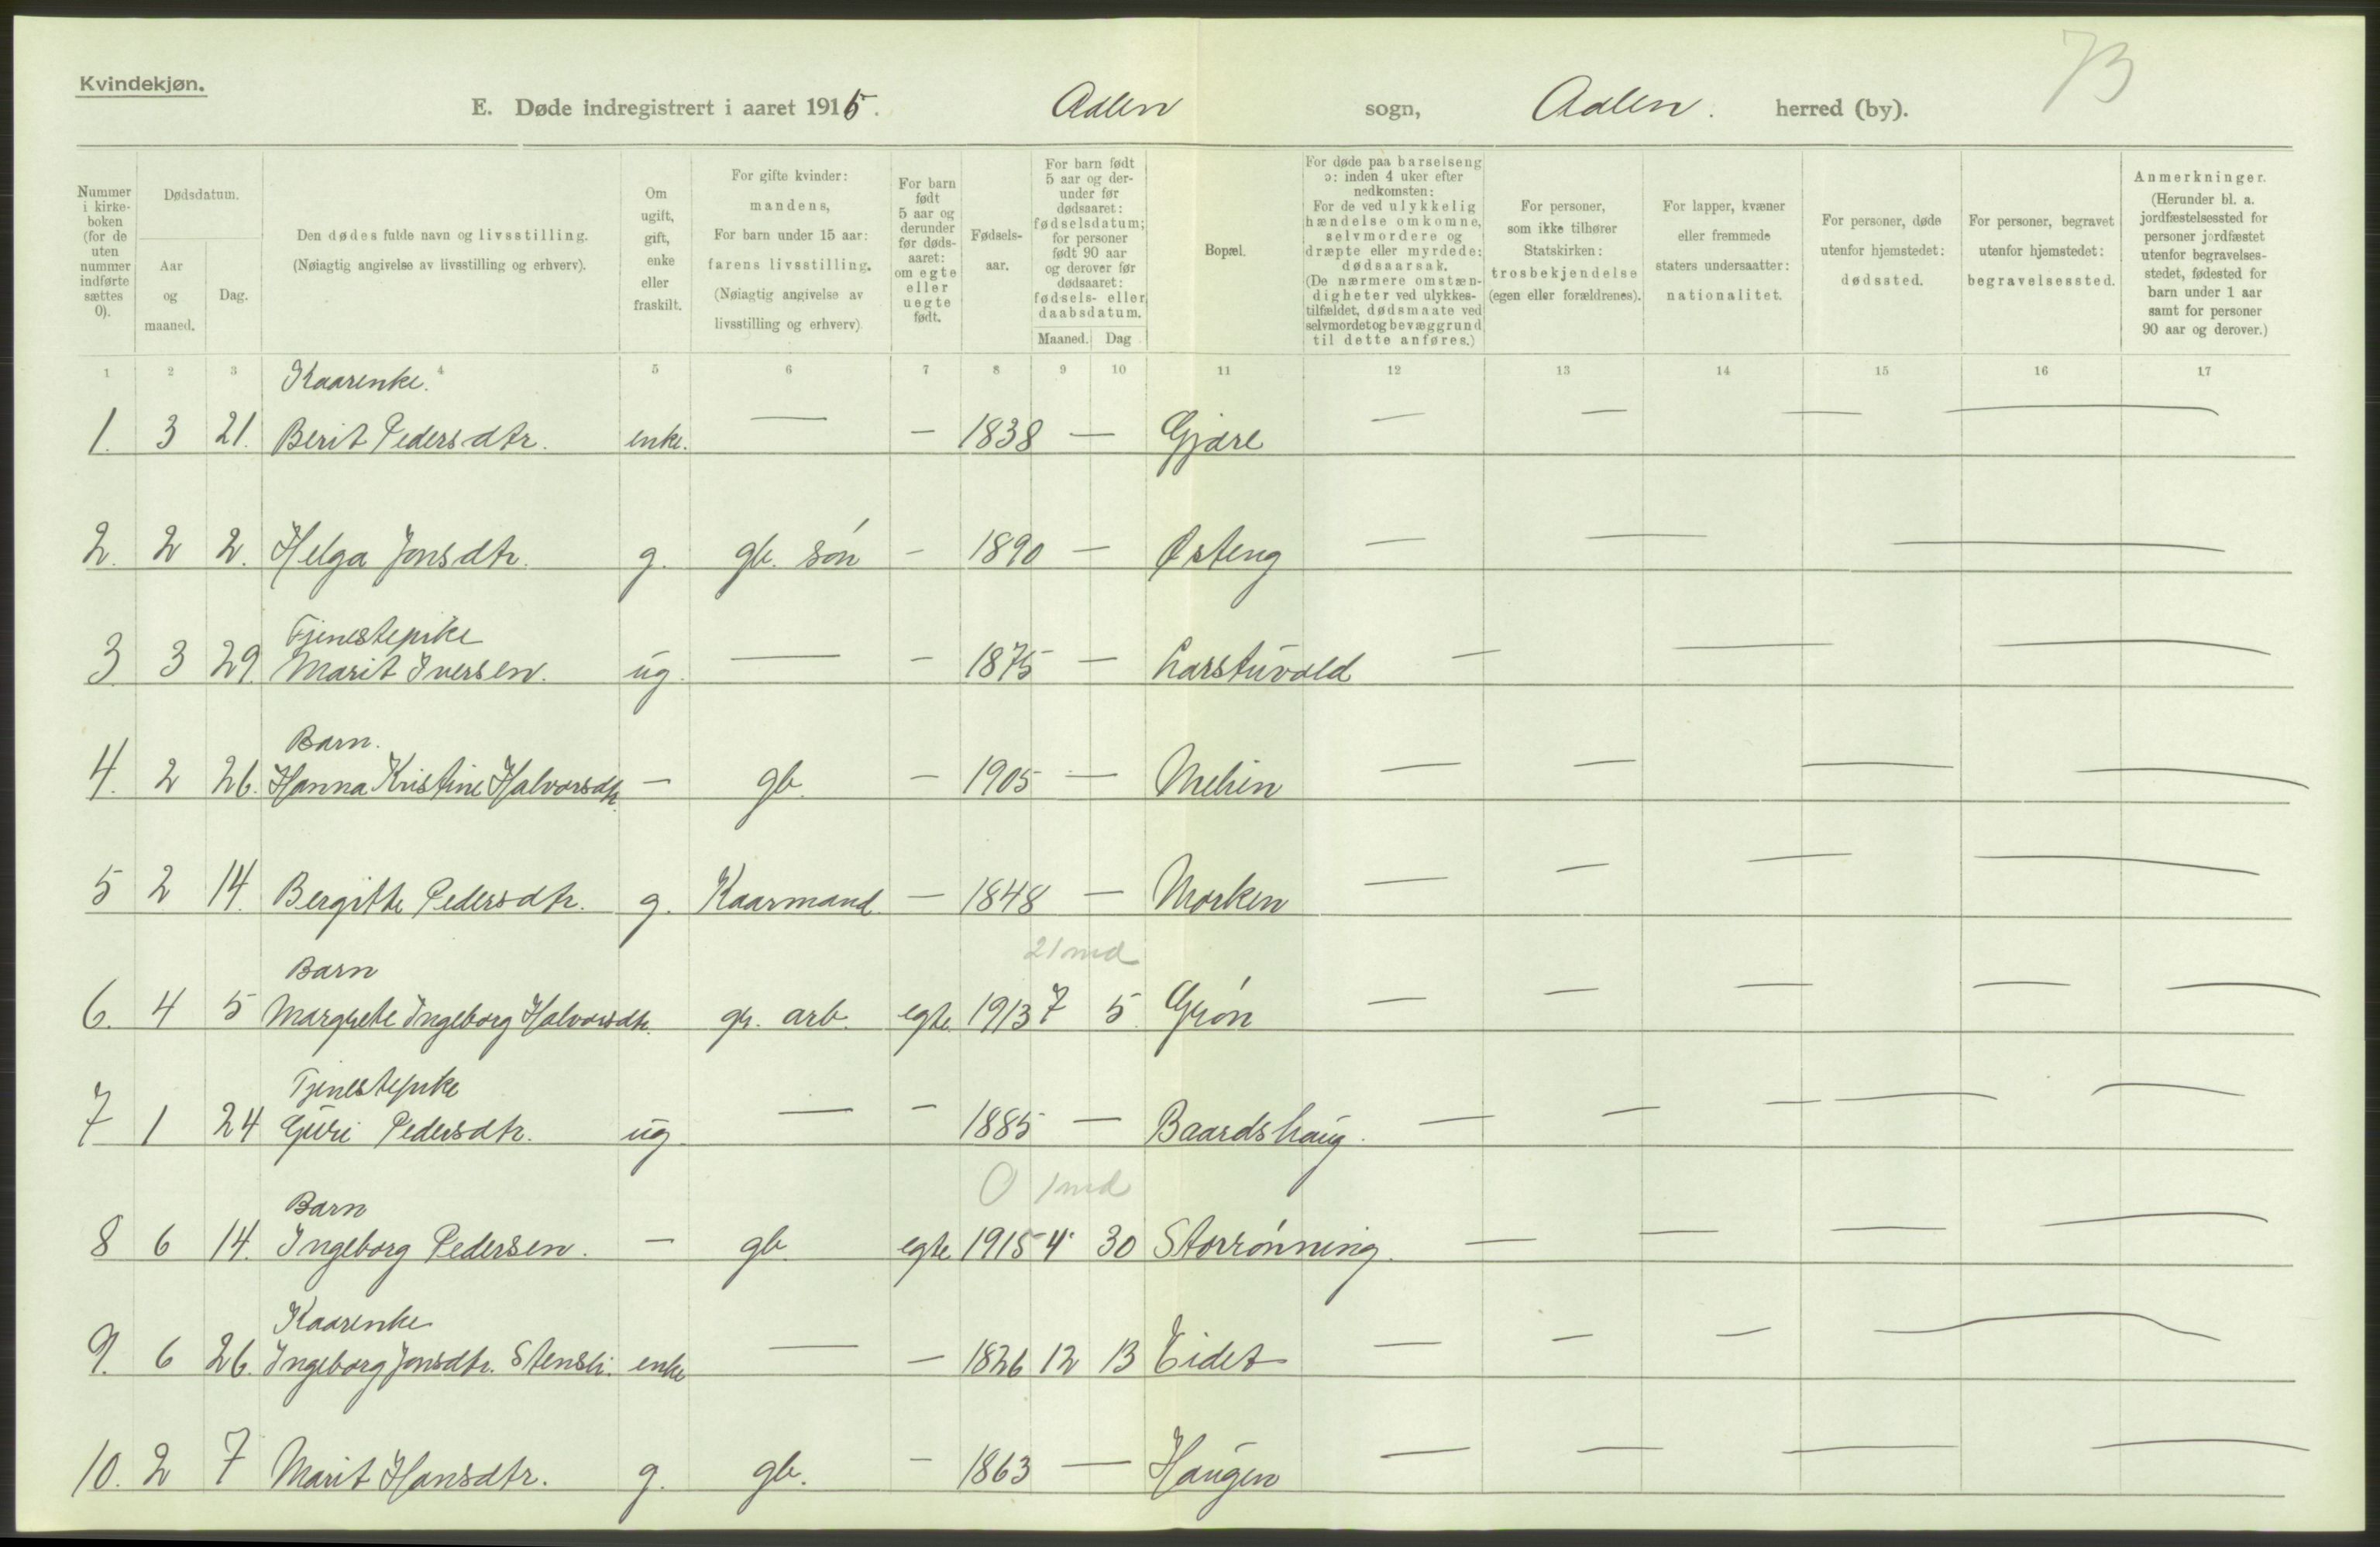 73
Kvindekjøn.
E. Døde indregistrert i aaret 1915. Aalen sogn, Aalen. herred (by).
Nummer i kirke-boken (for de uten nummer indførte sættes 0).
Dødsdatum.
Aar og maaned.
Dag.
Den dødes fulde navn og livsstilling.
(Nøiagtig angivelse av livsstilling og erhverv).
Om ugift, gift, enke eller fraskilt.
For gifte kvinder: mandens,
For barn under 15 aar: farens livsstilling.
(Nøiagtig angivelse av livsstilling og erhverv).
For barn født 5 aar og derunder før døds-aaret: om egte eller uegte født.
Fødsels-aar.
For barn født 5 aar og der-under før dødsaaret: fødselsdatum; for personer født 90 aar og derover før dødsaaret: fødsels- eller daabsdatum.
Maaned. Dag
Bopæl.
For døde paa barselseng ɔ: inden 4 uker efter nedkomsten:
For de ved ulykkelig hændelse omkomne, selvmordere og dræpte eller myrdede: dødsaarsak.
(De nærmere omstæn-digheter ved ulykkes-tilfældet, dødsmaate ved selvmordet og bevæggrund til dette anføres.)
For personer, som ikke tilhører Statskirken: trosbekjendelse (egen eller forældrenes).
For lapper, kvæner eller fremmede staters undersaatter: nationalitet.
For personer, døde utenfor hjemstedet: dødssted.
For personer, begravet utenfor hjemstedet: begravelsessted.
Anmerkninger.
(Herunder bl. a. jordfæstelsessted for personer jordfæstet utenfor begravelses-stedet, fødested for barn under 1 aar samt for personer 90 aar og derover.)
1 2 3 4 5 6 7 8 9 10 11 12 13 14 15 16 17
Kaarenke.
1. 3 21. Berit Pedersdtr. enke. — — 1838 — Gjære — — — —
2. 2 2. Helga Jonsdtr. g. gb. søn — 1890 — Østeng — — —
Tjenestepike
3 3 29. Marit Iversen. ug. — — 1875 — Larstuvold — — —
Barn.
4. 2 26. Hanna Kristine Halvorsdtr. — gb. — 1905 — Melien — — — —
5 2 14. Bergitte Pedersdtr. g. Kaarmand. — 1848 — Morken — — — —
21 md
Barn
6. 4 5 Margrete Ingeborg Halvorsdtr. gr. arb. egte 1913 7 5. Grøn — — — — —
Tjenestepike
7 1 24 Guri Pedersdtr. ug. — — 1885 — Baardshaug. — — — — —
0 1 md
Barn
8 6 14. Ingeborg Pedersen. — gb. egte 1915 4 30 Storrønning. — — — —
Kaarenke
9. 6 26. Ingeborg Jonsdtr. Stensli. enke — — 1826 12 13 Eidet — — — —
10. 2 7 Marit Hansdtr. g. gb. — 1863 — Haugen — — — —